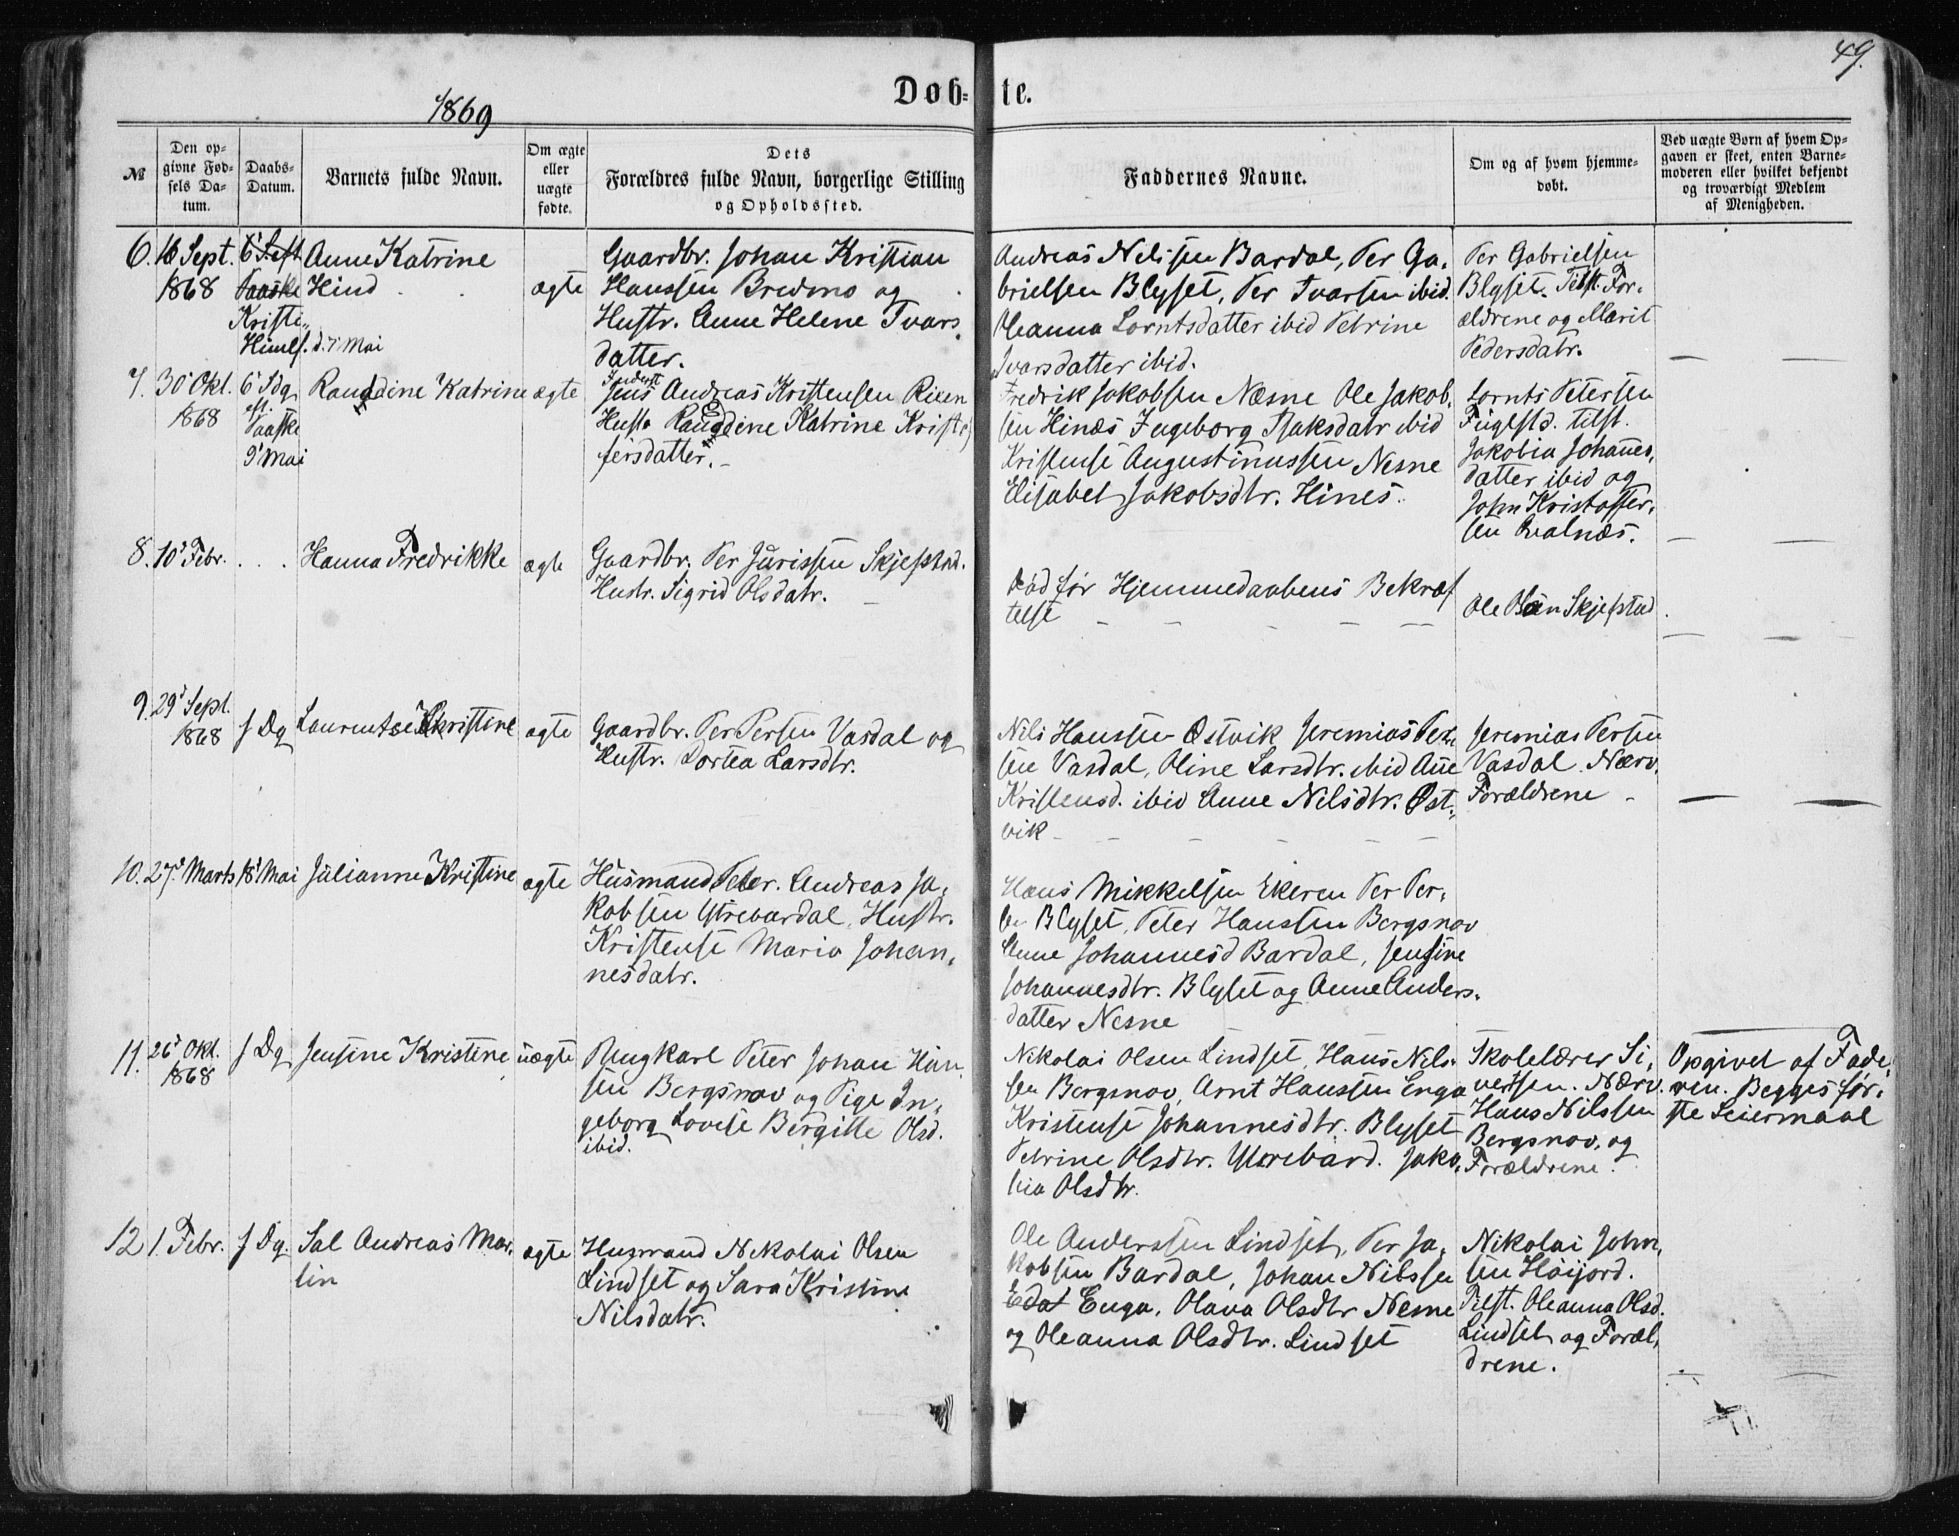 49.
Døb-
te.
1869
№
Den op-
givne Fød-
sels Da-
tum.
Daabs-
Datum.
Barnets fulde Navn.
Om ægte
eller
uægte
fødte.
Dets
Forældres fulde Navn, borgerlige Stilling
og Opholdssted.
Faddernes Navne.
Om og af hvem hjemme-
døbt.
Ved uægte Børn af hvem Op-
gaven er skeet, enten Barne-
moderen eller hvilket bekjendt
og troværdigt Medlem
af Menigheden.
6. 16 Sept.
1868
Kristi
Himlf. d. 7 Mai
Anne Katrine
Hind
ægte
Gaardbr. Johan Kristian
Hanssen Bredmo og
Hustr. Anne Helene Ivars
datter.
Andreas Nilssen Bardal, Per Ga-
brielsen Blyset, Per Ivarsen ibid.
Oleanna Lorntsdatter ibid Petrine
Ivarsdatter ibid.
Per Gabrielsen
Blyset. Tilst. For-
ældrene og Marit
Pedersdatr.
7. 30 Okt.
1868
6 Sdg
eft.
Paaske
9 Mai
Katrine
ægte
Inderst
Jens Andreas Kristensen
Katrine Kristo
fersdatter.
Fredrik Jakobsen Næsne Ole Jakob-
sen Hinæs Ingeborg Isaksdatr ibid
Kristense Augustinussen Nesne
Elisabet Jakobsdtr. Hines.
Lornts Petersen
Fuglstd. tilst.
Jakobia Johannes-
datter ibid og
John Kristoffer-
sen
8. 10 Febr.
Hanna Fredrikke
ægte
Gaardbr. Per Jurissen Skjefstad.
Hustr. Sigrid Olsdatr.
Død før Hjemmedaabens Bekræf
telse
Ole Olsen Skjefstad
9. 29 Sept.
1868
s Dg
Kristine
ægte
Gaardbr. Per Persen Vasdal og
Hustr. Dortea Larsdtr.
Nils Hanssen Østvik Jeremias Per-
sen Vasdal, Oline Larsdtr. ibid Ane
Kristensd. ibid Anne Nilsdtr. Øst-
vik
Jeremias Persen
Vasdal. Nærv.
Forældrene
10. 27 Marts
18 Mai
Julianne Kristine
ægte
Husmand Peter Andreas Ja-
kobsen Ytrebardal, Hustr.
Kristense Maria Johan-
nesdatr.
Hans Mikkelsen Ekeren Per Per-
sen Blyset, Peter Hanssen Bergsnov
Anne Johannesd Bardal, Jensine
Johannesdtr. Blyset og Anne Anders-
datter Nesne
11. 26 Okt.
1868
s Dg
Jensine Kristine
uægte
Ungkarl Peter Johan Han-
sen Bergsnov og Pige In-
geborg Lovise Bergitte Olsd.
ibid.
Nikolai Olsen Lindset, Hans Nils-
sen Bergsnov, Arnt Hanssen Enga
Kristense Johannesdtr. Blyset
Petrine Olsdtr. Ytrebard. Jako-
bia Olsdtr.
Skolelærer Si-
vertsen. Nærv.
Hans Nilssen
Bergsnov, og
Forældrene.
Opgivet af Fade-
ren. Begges før-
ste Leiermaal
12 1. Febr.
s Dg.
Sal Andreas Mar-
tin
ægte
Husmand Nikolai Olsen
Lindset og Sara Kristine
Nilsdatr.
Ole Anderssen Lindset, Per Ja-
kobsen Bardal, Johan Nilssen
Enga, Olava Olsdtr Nesne
og Oleanna Olsdtr. Lindset
Nikolai John-
sen Høijord.
Tilst. Oleanna Olsd.
Lindset og Foræl-
drene.